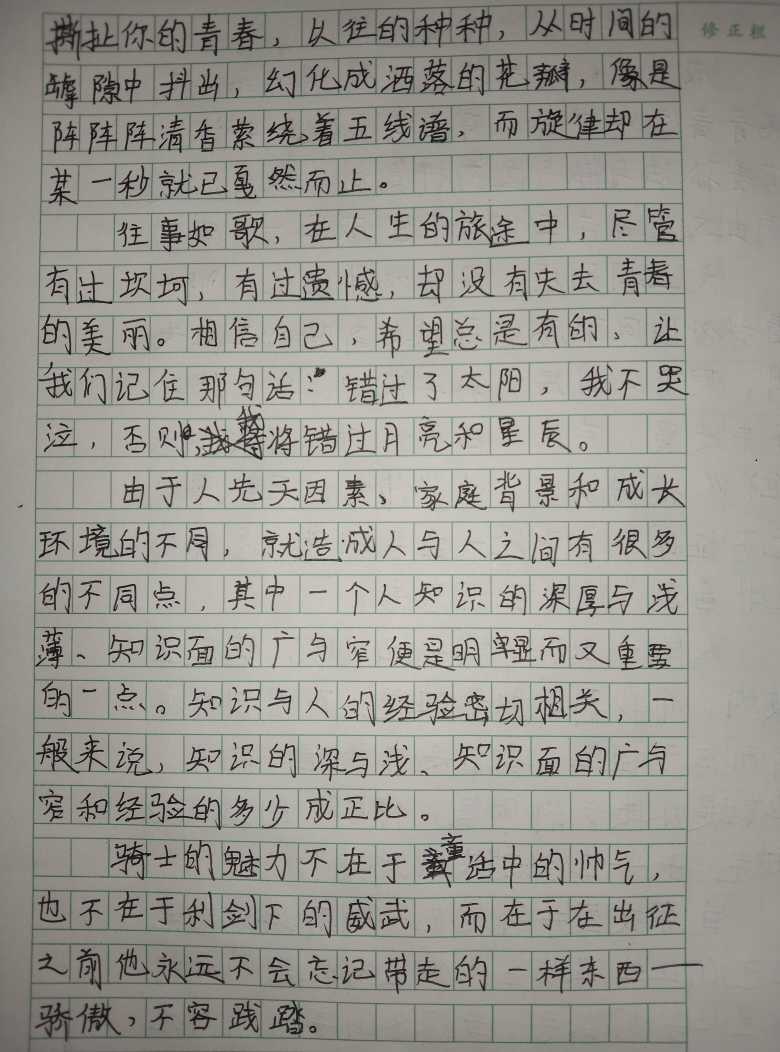 修正栏
撕扯你的青春，以往的种种，从时间的
罅隙中抖出，幻化成洒落的花瓣，像是
阵阵阵清香萦绕着五线谱，而旋律却在
某一秒就已戛然而止。
往事如歌，在人生的旅途中，尽管
有过坎坷，有过遗憾，却没有失去青春
的美丽。相信自己，希望总是有的、让
我们记住那句话：错过了太阳，我不哭
泣，否则，我将错过月亮和星辰。
由于人先天因素、家庭背景和成长
环境的不同，就造成人与人之间有很多
的不同点，其中一个人知识的深厚与浅
薄、知识面的广与窄便是明显而又重要
的一点。知识与人的经验密切相关，一
般来说，知识的深与浅、知识面的广与
窄和经验的多少成正比。
骑士的魅力不在于童话中的帅气，
也不在于利剑下的威武，而在于在出征
之前他永远不会忘记带走的一样东西——
骄傲，不容践踏。